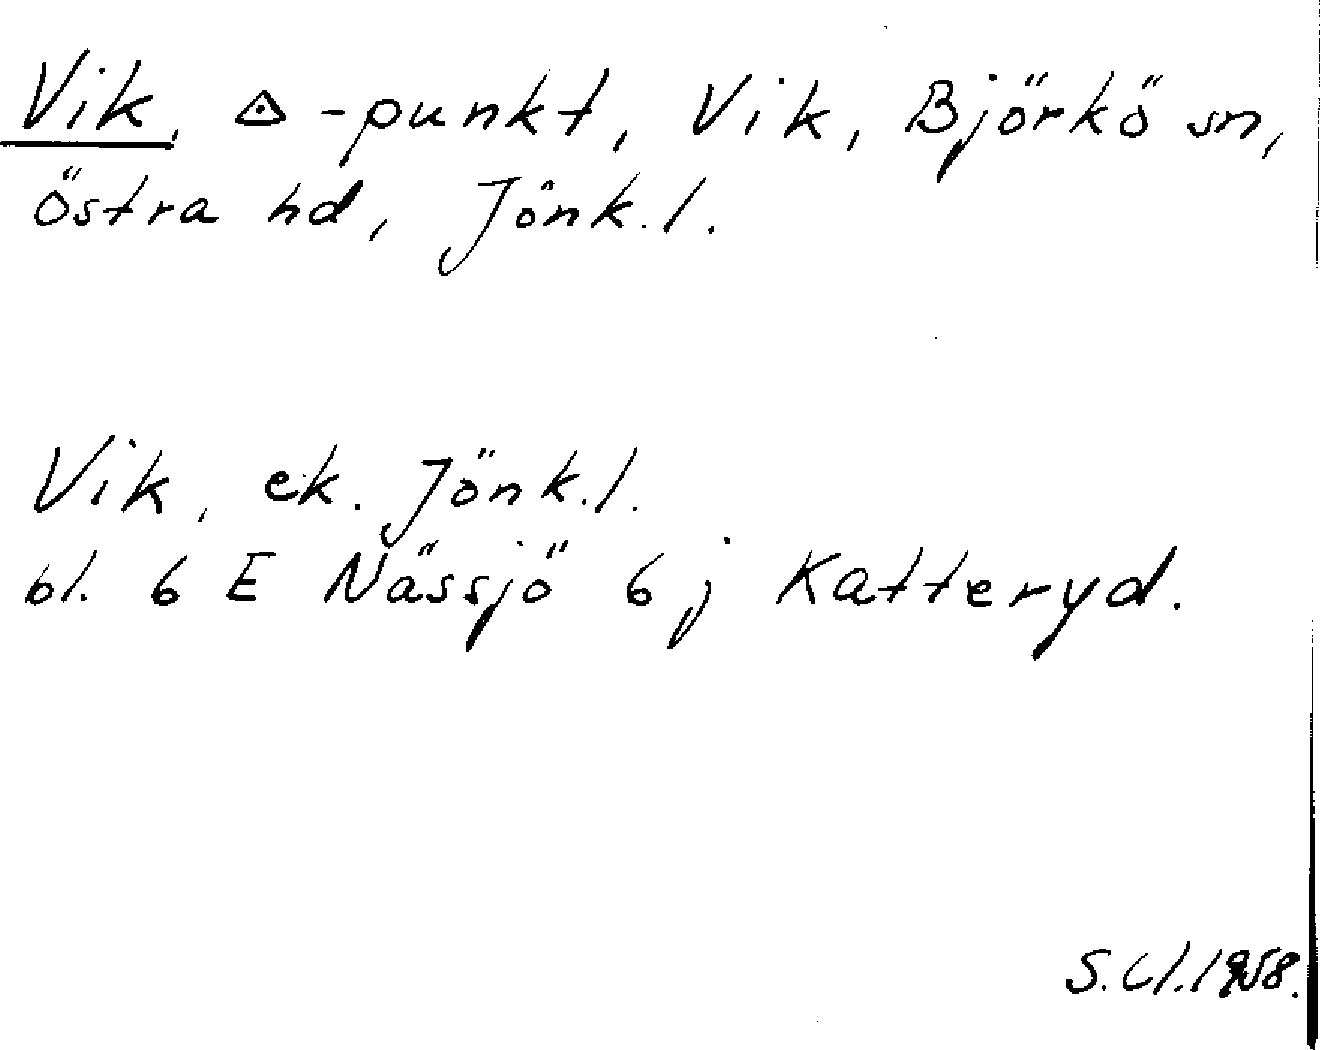 Vik, △-punkt, Vik, Björkö sn,
Östra hd, Jönk.l.
Vik, ek. Jönk.l.
bl. 6 E Nässjö 6 j Katteryd.
S.Cl.1958.